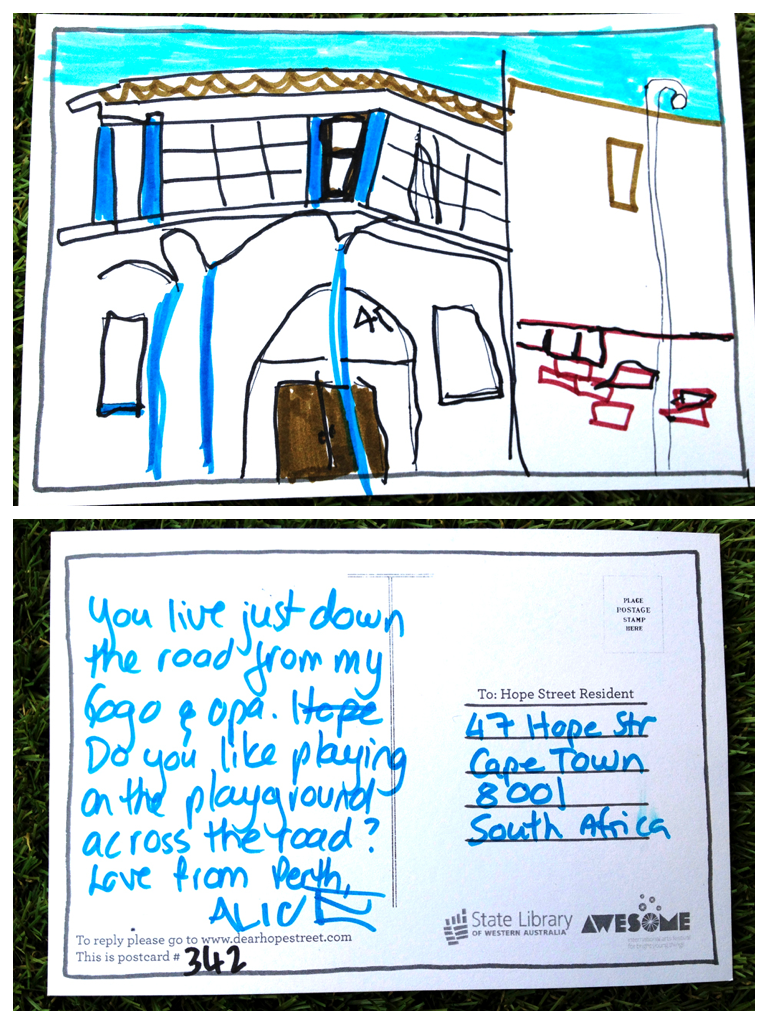 47
You live just down
the road from my
Gogo & opa. Hope
Do you like playing
on the playground
across the road?
Love from Perth,
ALICE
To reply please go to www.dearhopestreet.com
This is postcard # 342
PLACE
POSTAGE
STAMP
HERE
To: Hope Street Resident
47 Hope Str
Cape Town
8001
South Africa
State Library
OF WESTERN AUSTRALIA
AWESOME